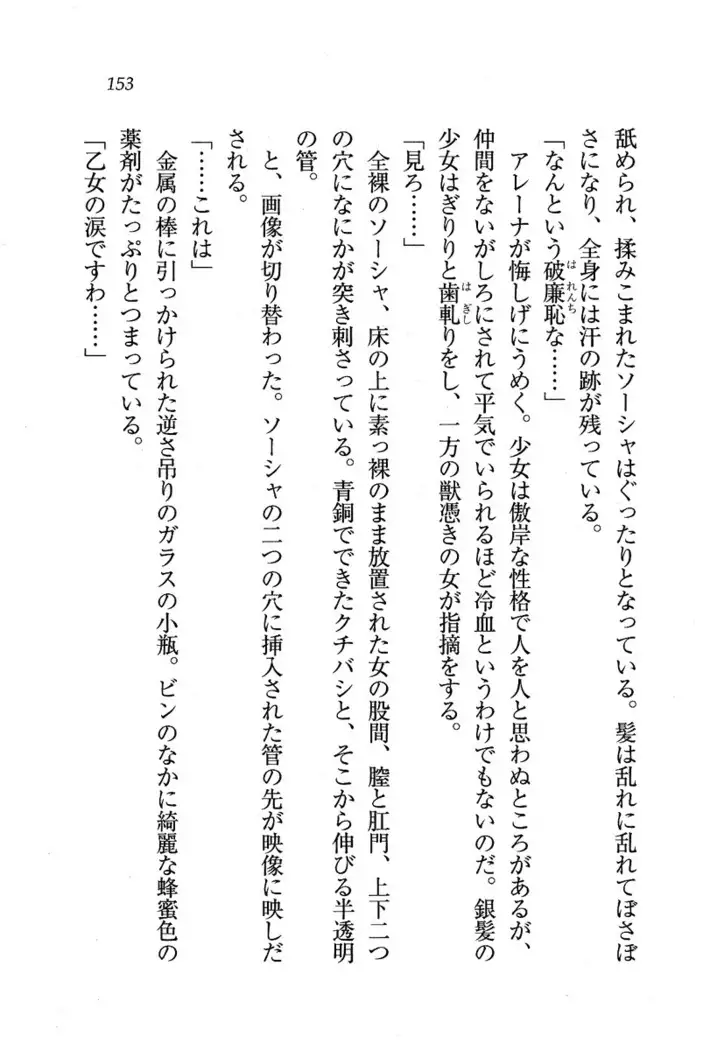 153
舐められ、揉みこまれたソーシャはぐったりとなっている。髪は乱れに乱れてぼさぼ
さになり、全身には汗の跡が残っている。
「なんという破廉恥な……」
アレーナが悔しげにうめく。少女は傲岸な性格で人を人と思わぬところがあるが、
仲間をないがしろにされて平気でいられるほど冷血というわけでもないのだ。銀髪の
少女はぎりりと歯軋りをし、一方の獣憑きの女が指摘をする。
「見ろ……」
全裸のソーシャ、床の上に素っ裸のまま放置された女の股間、膣と肛門、上下二つ
の穴になにかが突き刺さっている。青銅でできたクチバシと、そこから伸びる半透明
の管。
と、画像が切り替わった。ソーシャの二つの穴に挿入された管の先が映像に映しだ
される。
「……これは」
金属の棒に引っかけられた逆さ吊りのガラスの小瓶。ビンのなかに綺麗な蜂蜜色の
薬剤がたっぷりとつまっている。
「乙女の涙ですわ……」